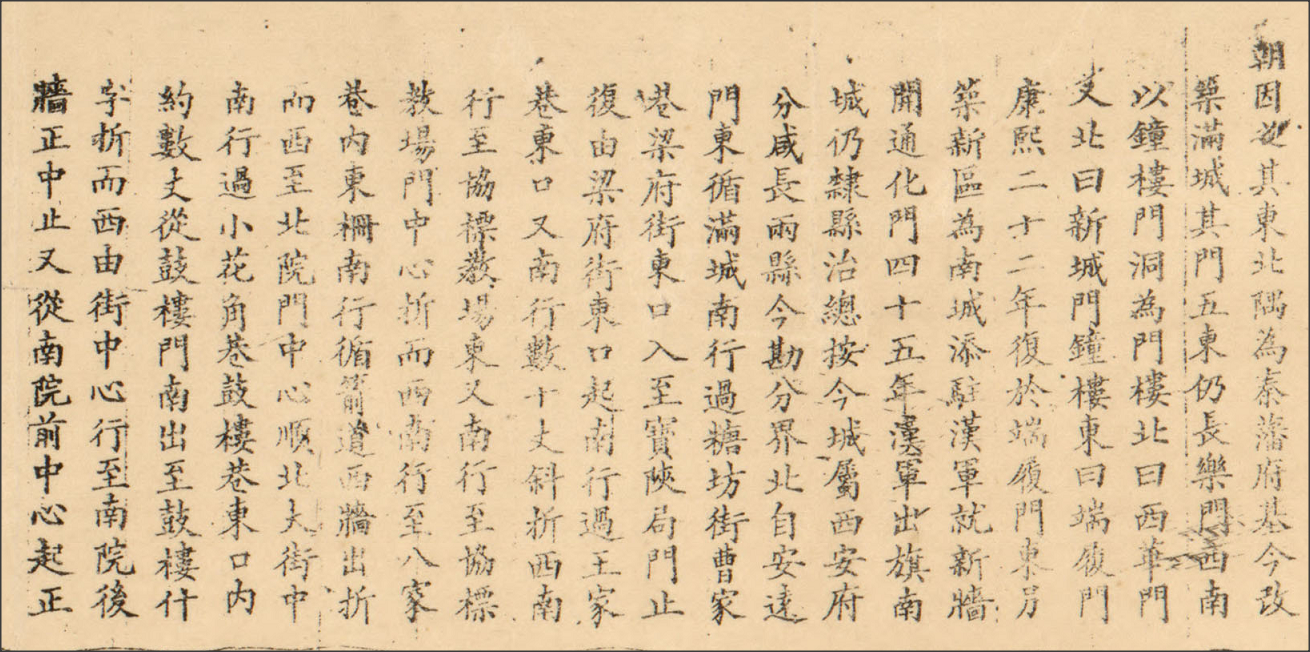 朝因之其東北隅為秦藩府基今改
築滿城其門五東仍長樂門西南
以鐘樓門洞為門樓北曰西華門
又北曰新城門鐘樓東曰端履門
康熙二十二年復於端履門東另
築新區為南城添駐漢軍就新牆
開通化門四十五年漢軍出旗南
城仍隸縣治總按今城屬西安府
分咸長兩縣今勘分界北自安遠
門東循滿城南行過糖坊街曹家
巷梁府街東口入至寶陝局門止
復由梁府街東口起南行過王家
巷東口又南行數十丈斜折西南
行至協標教場東又南行至協標
教場門中心折而西南行至八家
巷內東柵南行循箭道西牆出折
而西至北院門中心順北大街中
南行過小花角巷鼓樓巷東口內
約數丈從鼓樓門南出至鼓樓什
字折而西由街中心行至南院後
牆正中止又從南院前中心起正